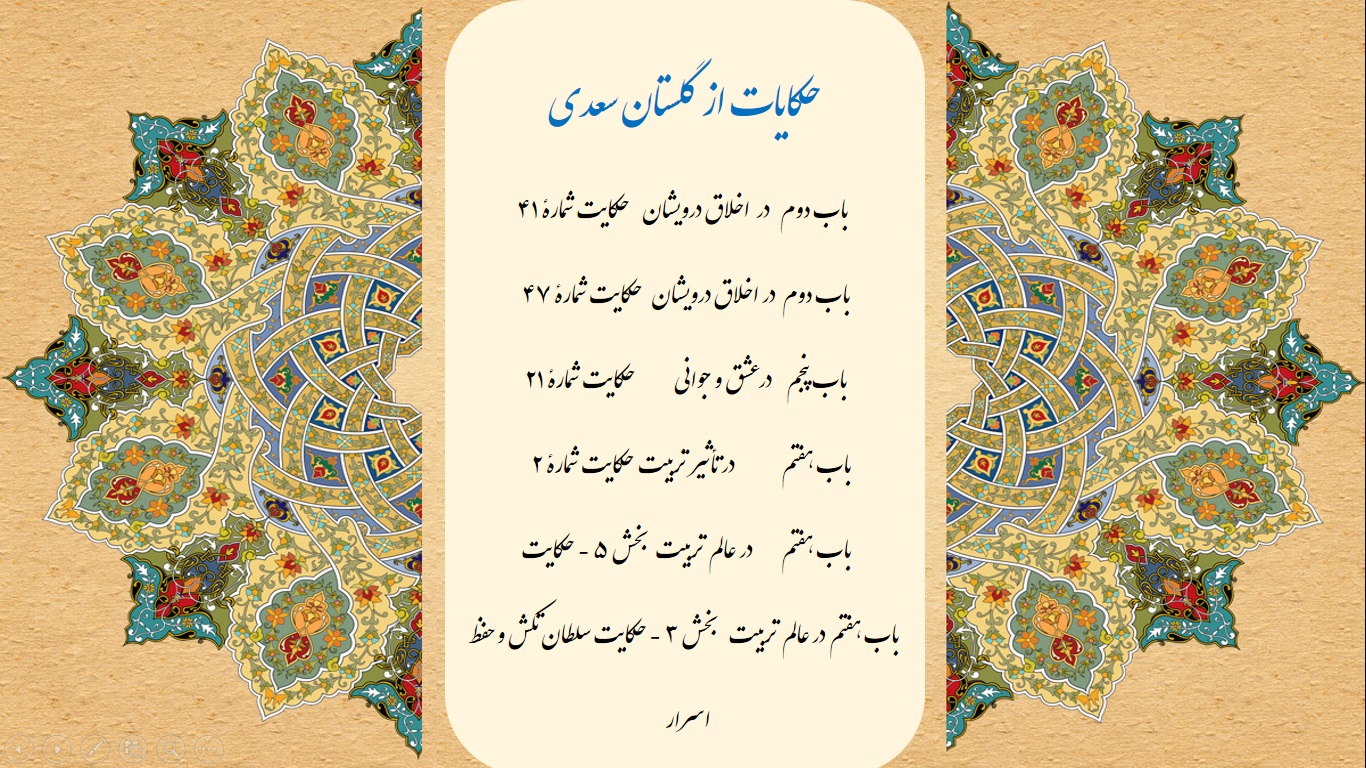 حکایات از گلستان سعدی
باب دوم در اخلاق درویشان حکایت شمارهٔ ۴۱
باب دوم در اخلاق درویشان حکایت شمارهٔ ۴۷
باب پنجم در عشق و جوانی حکایت شمارهٔ ۲۱
باب هفتم در تأثیر تربیت حکایت شمارهٔ ۲
باب هفتم در عالم تربیت بخش ۵ - حکایت
باب هفتم در عالم تربیت بخش ۳ - حکایت سلطان تکش و حفظ
اسرار